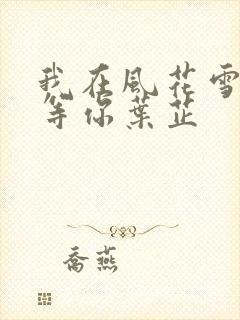 我在風花雪
等你葉芷
喬燕